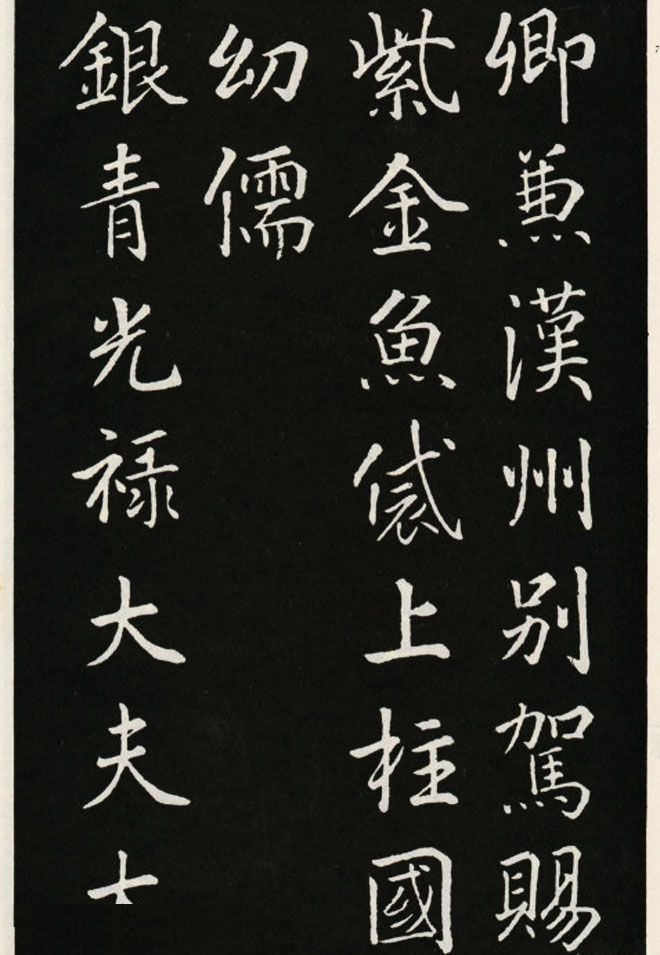 卿兼漢州别駕賜
紫金魚袋上柱國
幼儒
銀青光禄大夫